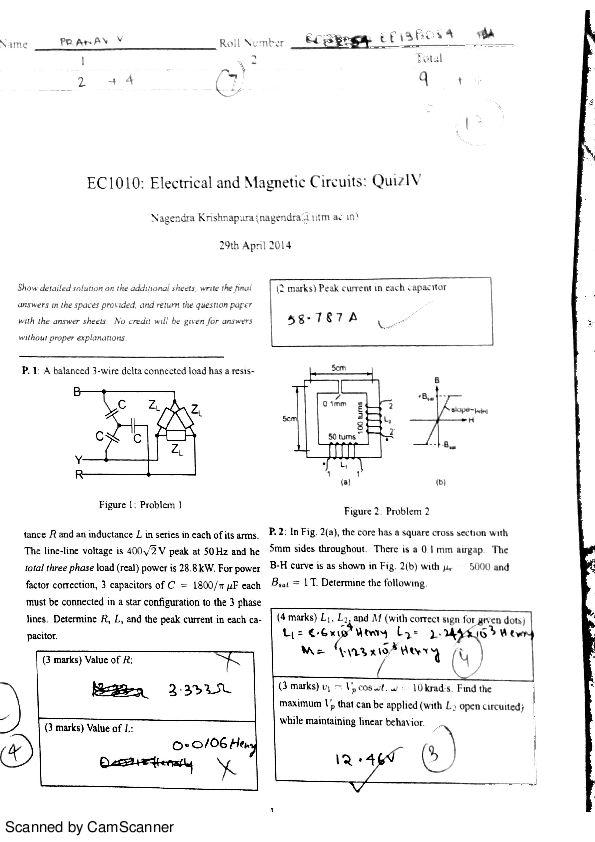 Name PRANAV V Roll Number EE13B054
1 2 Total
2 → 4 7 9 +
EC1010: Electrical and Magnetic Circuits: QuizIV
Nagendra Krishnapura (nagendra@iitm.ac.in)
29th April 2014
Show detailed solution on the additional sheets, write the final
answers in the spaces provided, and return the question paper
with the answer sheets. No credit will be given for answers
without proper explanations.
P. 1: A balanced 3-wire delta connected load has a resis-
B
C
C
C
Z_L
Z_L
Z_L
Y
R
Figure 1: Problem 1
tance R and an inductance L in series in each of its arms.
The line-line voltage is 400√2 V peak at 50 Hz and he
total three phase load (real) power is 28.8 kW. For power
factor correction, 3 capacitors of C = 1800/π μF each
must be connected in a star configuration to the 3 phase
lines. Determine R, L, and the peak current in each ca-
pacitor.
(3 marks) Value of R:
3.333Ω
(3 marks) Value of L:
0.0106 Henry
4
(2 marks) Peak current in each capacitor
58.787A
5cm
5cm
0.1mm
100 turns
50 turns
2
L₂
2'
L₁
1
1'
(a)
B
+B_sat
slope=μ_rμ_0
H
-B_sat
(b)
Figure 2: Problem 2
P. 2: In Fig. 2(a), the core has a square cross section with
5mm sides throughout. There is a 0.1 mm airgap. The
B-H curve is as shown in Fig. 2(b) with μ_r 5000 and
B_sat = 1 T. Determine the following.
(4 marks) L₁, L₂, and M (with correct sign for given dots)
L₁ = Henry L₂ = Henry
M = Henry 4
(3 marks) v₁ = V_p cos ωt, ω 10 krad/s. Find the
maximum V_p that can be applied (with L₂ open circuited)
while maintaining linear behavior.
12.46V 3
1
Scanned by CamScanner